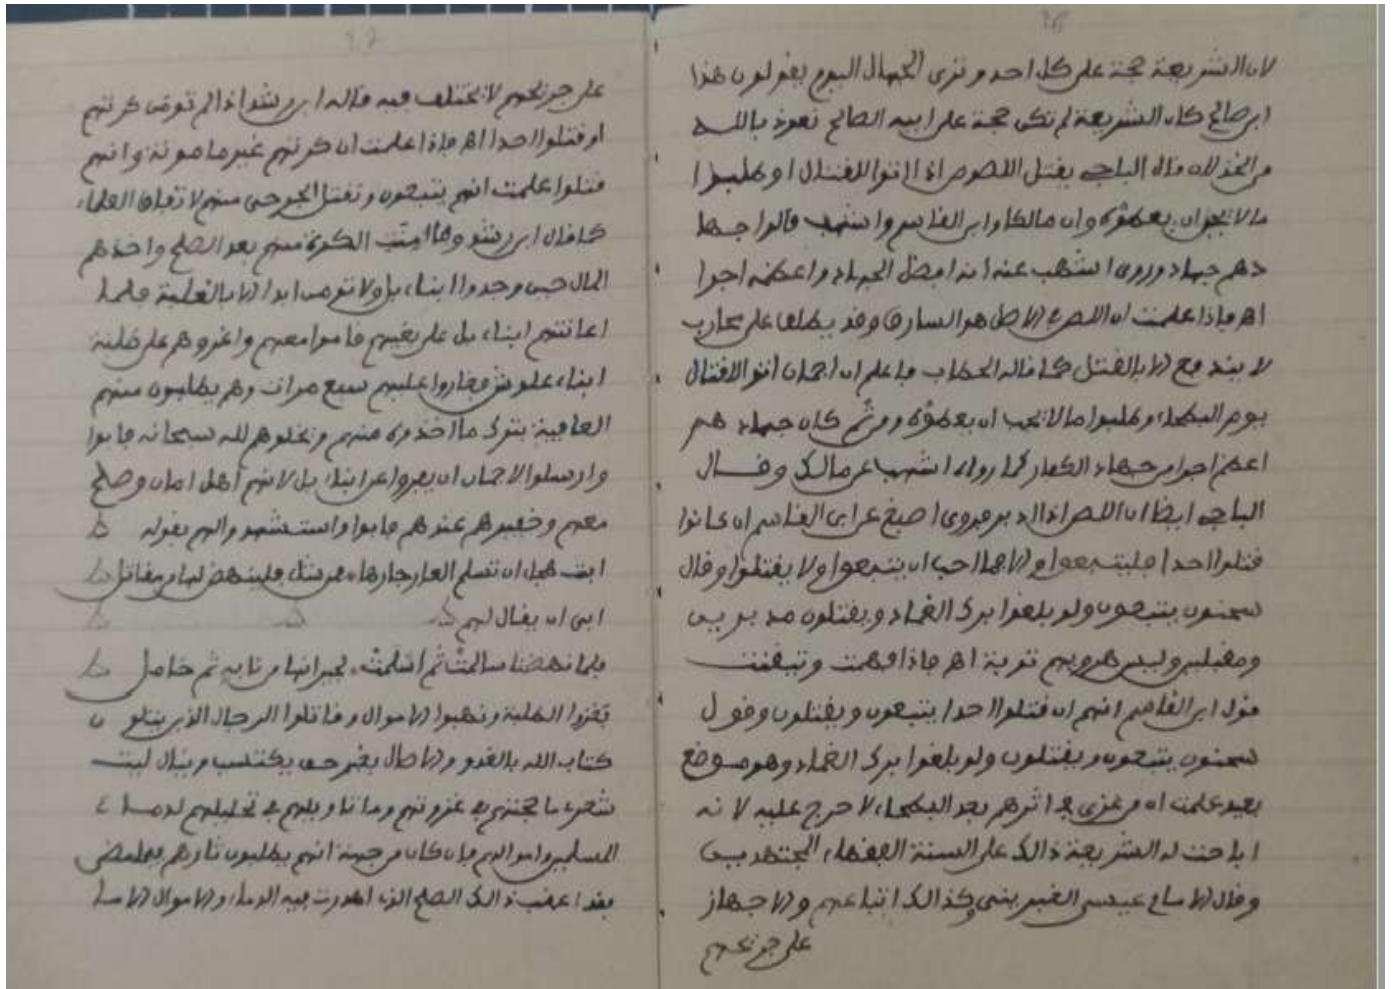 26
لان الشريعة حجة على كل احد وترى الجهال اليوم يقولون هذا
ابن صالح كان الشريعة لم تكن حجة على ابيه الصالح نعوذ بالله
من الخذلان قال الباجي يقتل اللصوص اذا اتوا للقتال او طلبوا
ما لا يجب ان يعطوه وان مالكا وابن القاسم واشهب قالوا جها
دهم جهاد وروى اشهب عنه انه افضل الجهاد واعظمه اجرا
اهـ فاذا علمت ان اللص في الاصل هو السارق وقد يطلق على محارب
لا يندفع الا بالقتل كما قاله الحطاب فاعلم ان اجمان اتوا لاقتال
يوم البطحاء وطلبوا ما لا يجب ان يعطوه ومن ثم كان جهادهم
اعظم اجرا من جهاد الكفار كما رواه اشهب عن مالك وقال
الباجي ايضا ان اللص اذا ادبر فروى اصبغ عن ابن القاسم ان كانوا
قتلوا احدا فليتبعوا والا فما احب ان يتبعوا ولا يقتلوا وقال
سحنون يتبعون ولو بلغوا برك الغماد ويقتلون مدبرين
ومقبلين وليس هروبهم توبة اهـ فاذا فهمت وتيقنت
قول ابن القاسم انهم ان قتلوا احدا يتبعون ويقتلون وقول
سحنون يتبعون ويقتلون ولو بلغوا برك الغماد وهو موضع
بعيد علمت ان من غزى في اثرهم بعد البطحاء لا حرج عليه لانه
اباحت له الشريعة ذالك على السنة الفقهاء المجتهدين
وقال الامام عيسى الغبريني وكذالك اتباعهم والاجهاز
على جريحهم
27
على جريحهم لا يختلف فيه قاله ابن رشد اذا لم تومن كرتهم
او قتلوا احدا اهـ فاذا علمت ان كرتهم غير مامونة وانهم
قتلوا علمت انهم يتبعون وتقتل الجرحى منهم لاتفاق العلماء
كما قال ابن رشد وما امنت الكرة منهم بعد الصلح واخذهم
المال حين وجدوا ابناء بل ولا تومن ابدا الا بالغلبة فلما
اعانتهم ابناء بل على بغيهم قاموا معهم واغزوهم على طلبة
ابناء علوش فغاروا عليهم سبع مرات وهم يطلبون منهم
العافية بترك ما اخذوه منهم ويخلوهم لله سبحانه فابوا
وارسلوا لاجمان ان يعزوا عن ابناء بل لانهم اهل امان وصلح
معهم وخفيرهم عندهم فابوا واستشهدوا لهم بقوله
ابت هجل ان تسلم العار جارها فمن شك فلينهض لها ومقاتل
ابى ان يقال لهم
فلما نهضنا سالمت ثم اسلمت لجيرانها من نابه ثم خامل
فغزوا الطلبة ونهبوا الاموال وقاتلوا الرجال الذين يتلون
كتاب الله بالغدو والاصال بغير حق يكتسب وينال ليت
شعري ما حجتهم في غزوتهم وما تاويلهم في تحليلهم لدماء
المسلمين واموالهم فان كان من جهة انهم يطلبون ثارهم فيما مضى
فقد اعقب ذالك الصلح الذي اهدرت فيه الدماء والاموال الا ما